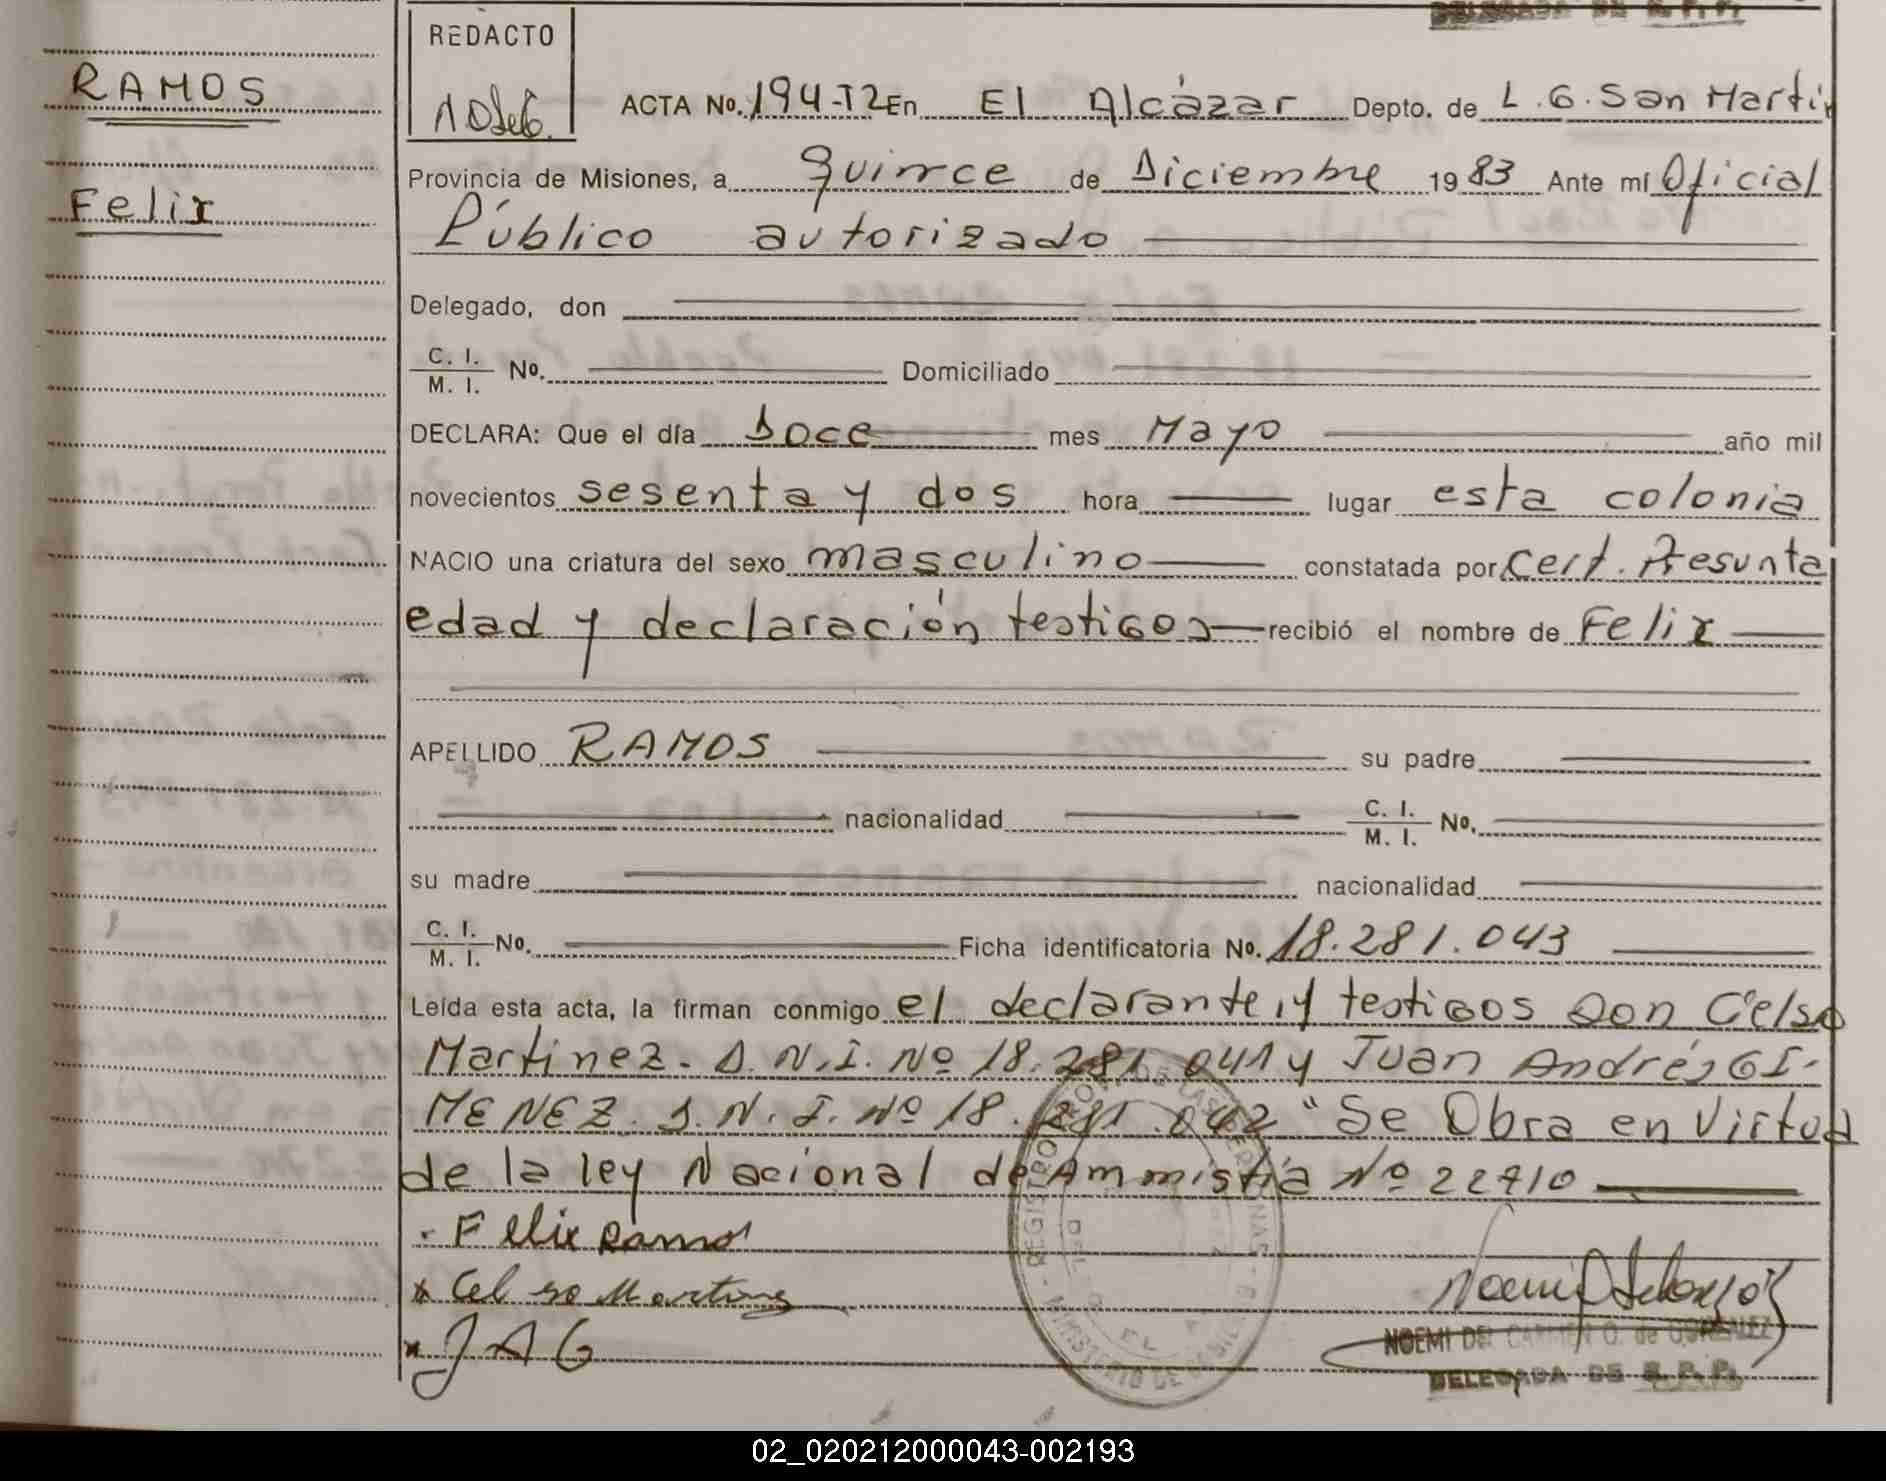 DELEGADA DE R. P. P.
RAMOS
Felix
REDACTO
ACTA No. 194-T2 En El Alcázar Depto. de L.G. San Martin
Provincia de Misiones, a quince de Diciembre 1983 Ante mí Oficial
Público autorizado
Delegado, don
C. I. / M. I. No. Domiciliado
DECLARA: Que el día Doce mes Mayo año mil
novecientos sesenta y dos hora lugar esta colonia
NACIO una criatura del sexo masculino constatada por Cert. Presunta
edad y declaración testigos recibió el nombre de Felix
APELLIDO RAMOS su padre
nacionalidad C. I. / M. I. No.
su madre nacionalidad
C. I. / M. I. No. Ficha identificatoria No. 18.281.043
Leída esta acta, la firman conmigo el declarante, y testigos Don Celso
Martinez. D.N.I. Nº 18.281.041 y Juan Andrés GI-
MENEZ. D.N.I. Nº 18.281.042 "Se Obra en Virtud
de la ley Nacional de Ammistía Nº 22410
Felix Ramos
x Celso Martinez
x JAG
NOEMI DEL CARMEN O. de GONZALEZ
DELEGADA DE R. P. P.
02_020212000043-002193